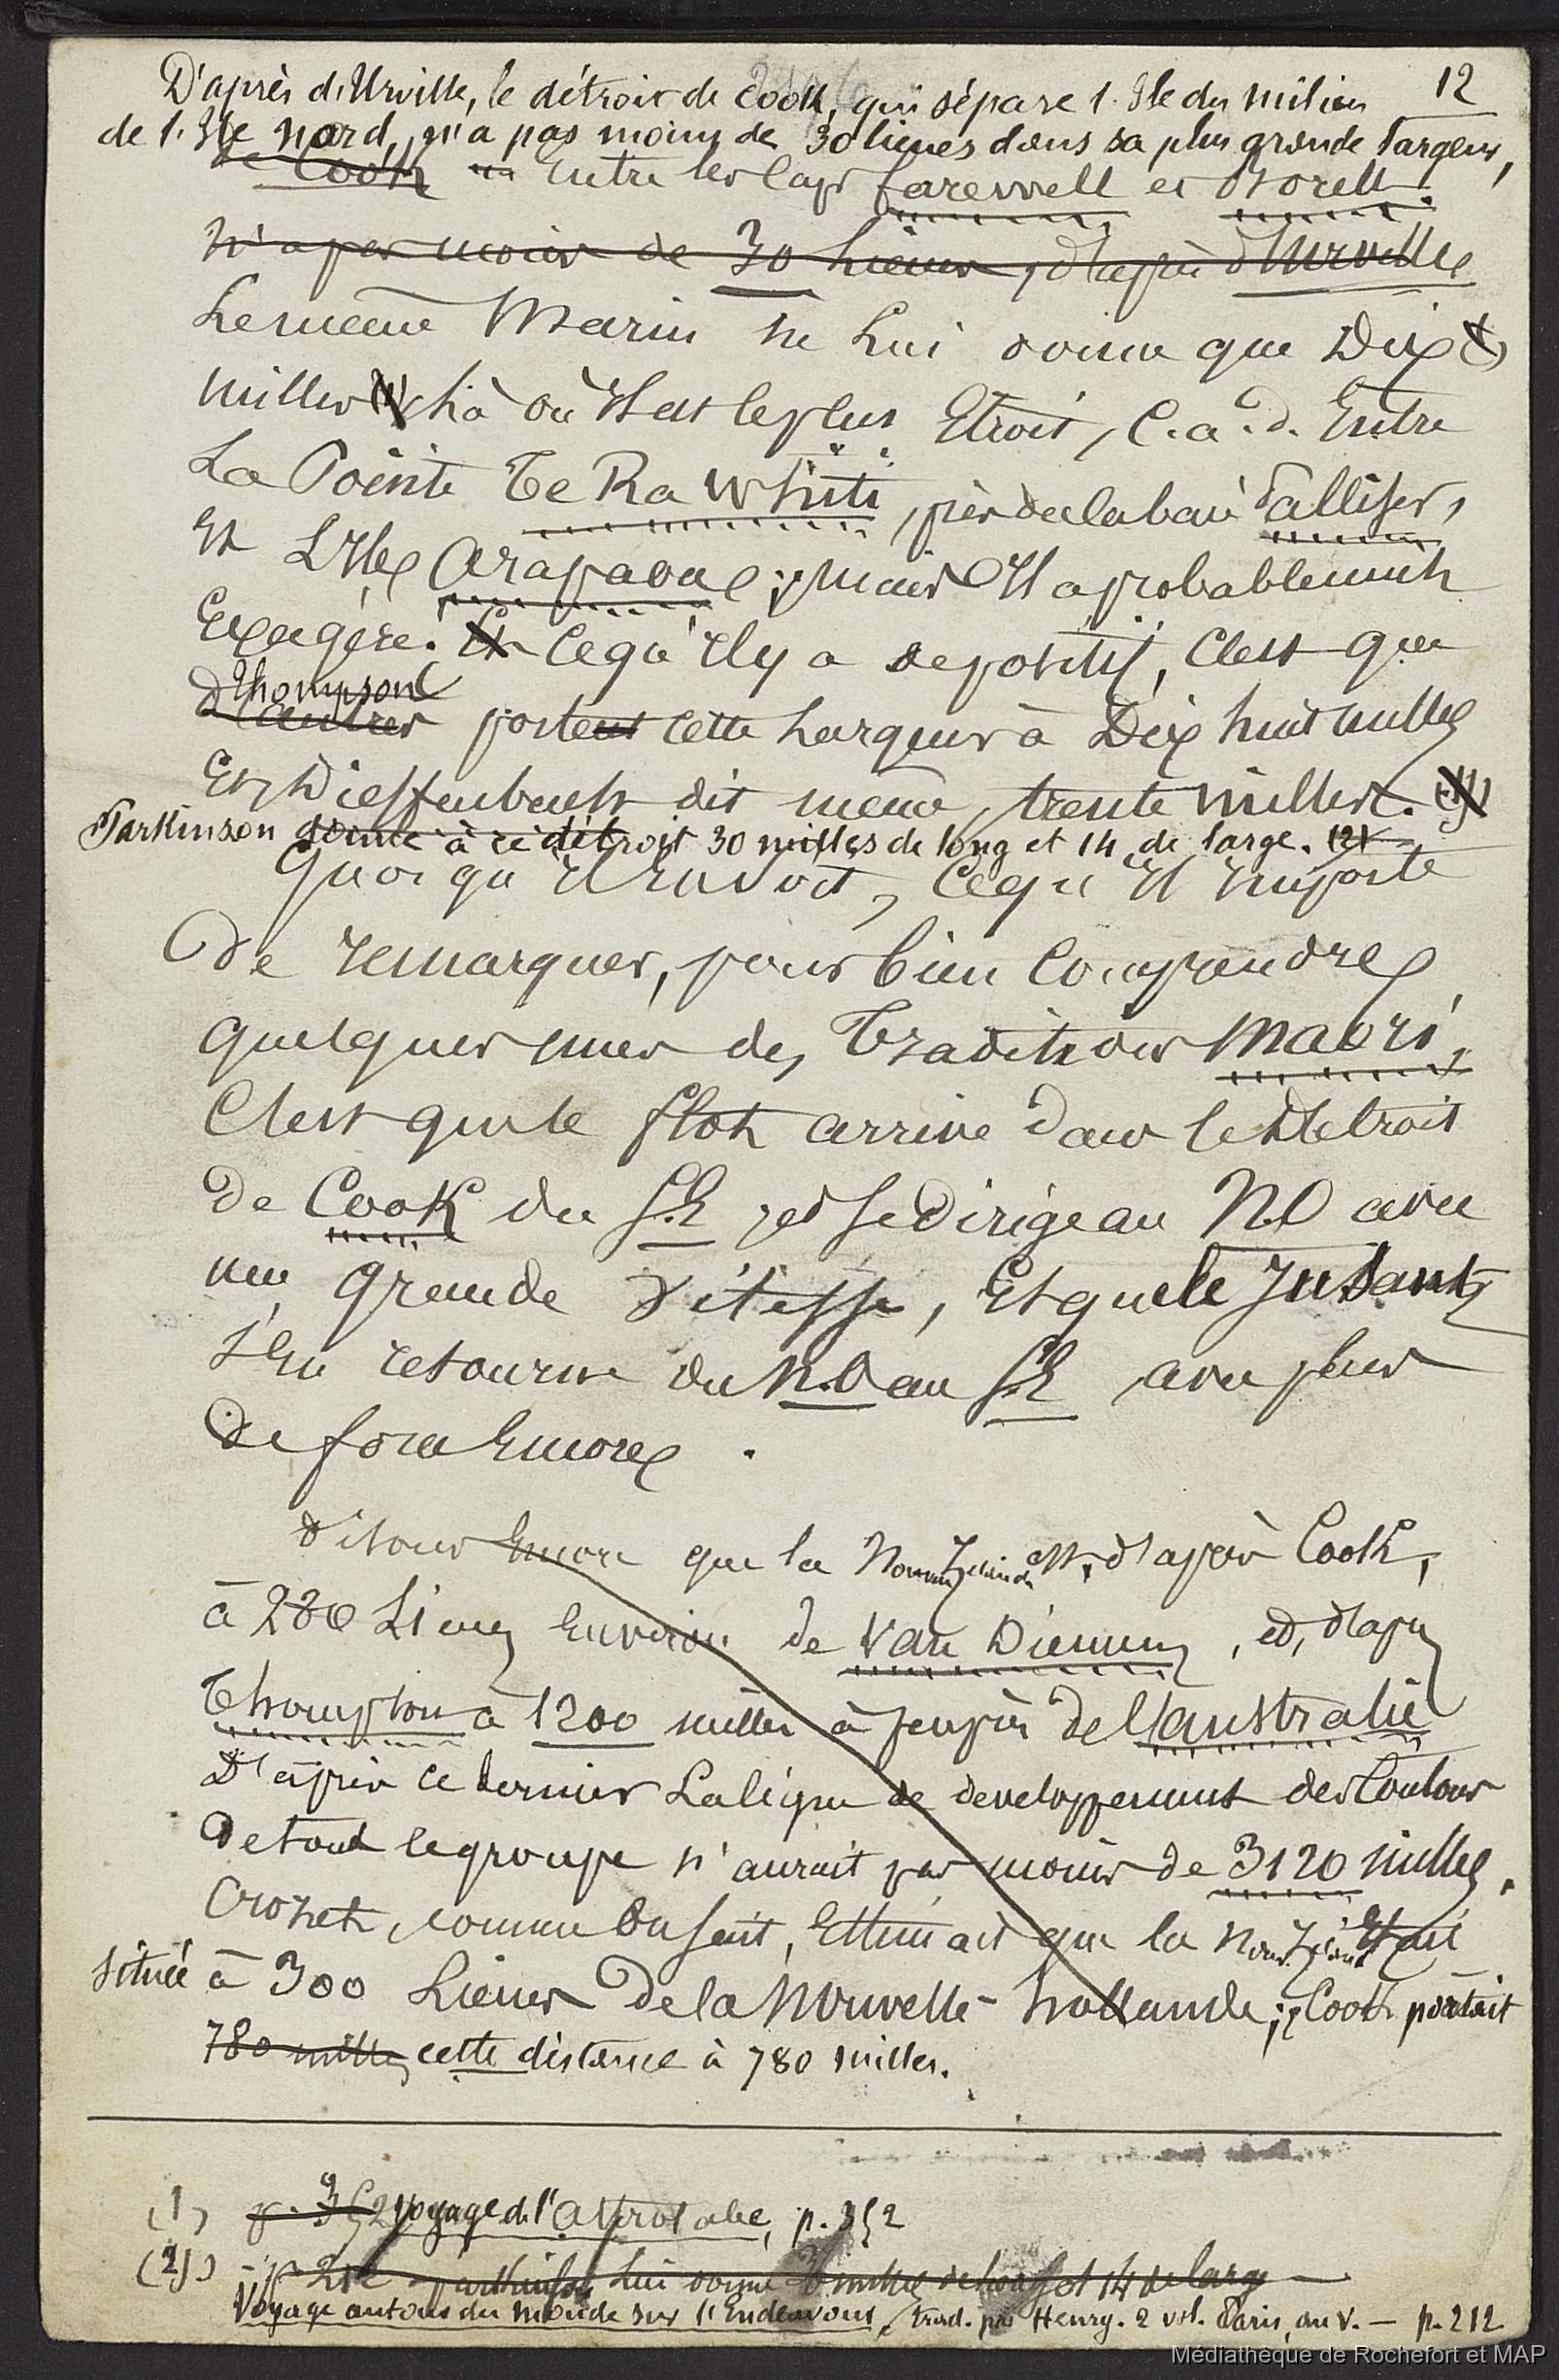 12
D'après d'Urville, le détroit de Cook, qui sépare l'Ile du milieu
de l'Ile nord, n'a pas moins de 30 lieues dans sa plus grande largeur,
de Cook entre les caps farewell et Borell.
N'a pas moins de 30 lieues, d'après d'Urville
Le même Marin ne lui donne que Dix
milles là où Il est le plus Etroit, C.a.d. Entre
La Pointe Te Ra Whiti, près de la baie d'alliser,
Et L'Ile Arapaoa ; mais Il a probablement
Exagéré. Et Ce qu'Il y a de positif, C'est que
Thompson
d'autres portent cette largeur à Dix huit milles
Et Dieffenbach dit même, trente milles. (1)
Parkinson donne à ce détroit 30 milles de long et 14 de large. (2)
Quoi qu'Il en soit, Ce qu'Il importe
De remarquer, pour bien Comprendre
quelques unes des Traditions Maori,
C'est que le flot arrive dans le Détroit
de Cook du S.E et se dirige au N.O avec
une grande vitesse, Et que le Jusant
s'En retourne du N.O au S.E avec plus
De force Encore.
Disons Encore que la Nouv Zélande est, d'après Cook,
à 280 Lieues Environ de Van Diemen, et, d'après
Thompson à 1200 milles à peu près de l'australie
D'après ce dernier La ligne de developpement des Contours
De tout le groupe n'aurait pas moins de 3120 milles.
Crozet, comme On sait, Estimait que la Nouv. Zéland Etait
située à 300 Lieues De la Nouvelle-hollande ; Cook portait
780 milles cette distance à 780 milles.
(1) p. 352 Voyage de l'Astrolabe, p. 352
(2) - p 212 Parkinson lui donne 30 milles de long et 14 de large -
Voyage autour du monde sur l'Endeavour, trad. par Henry. 2 vol. Paris, an V. - p. 212
Médiathèque de Rochefort et MAP